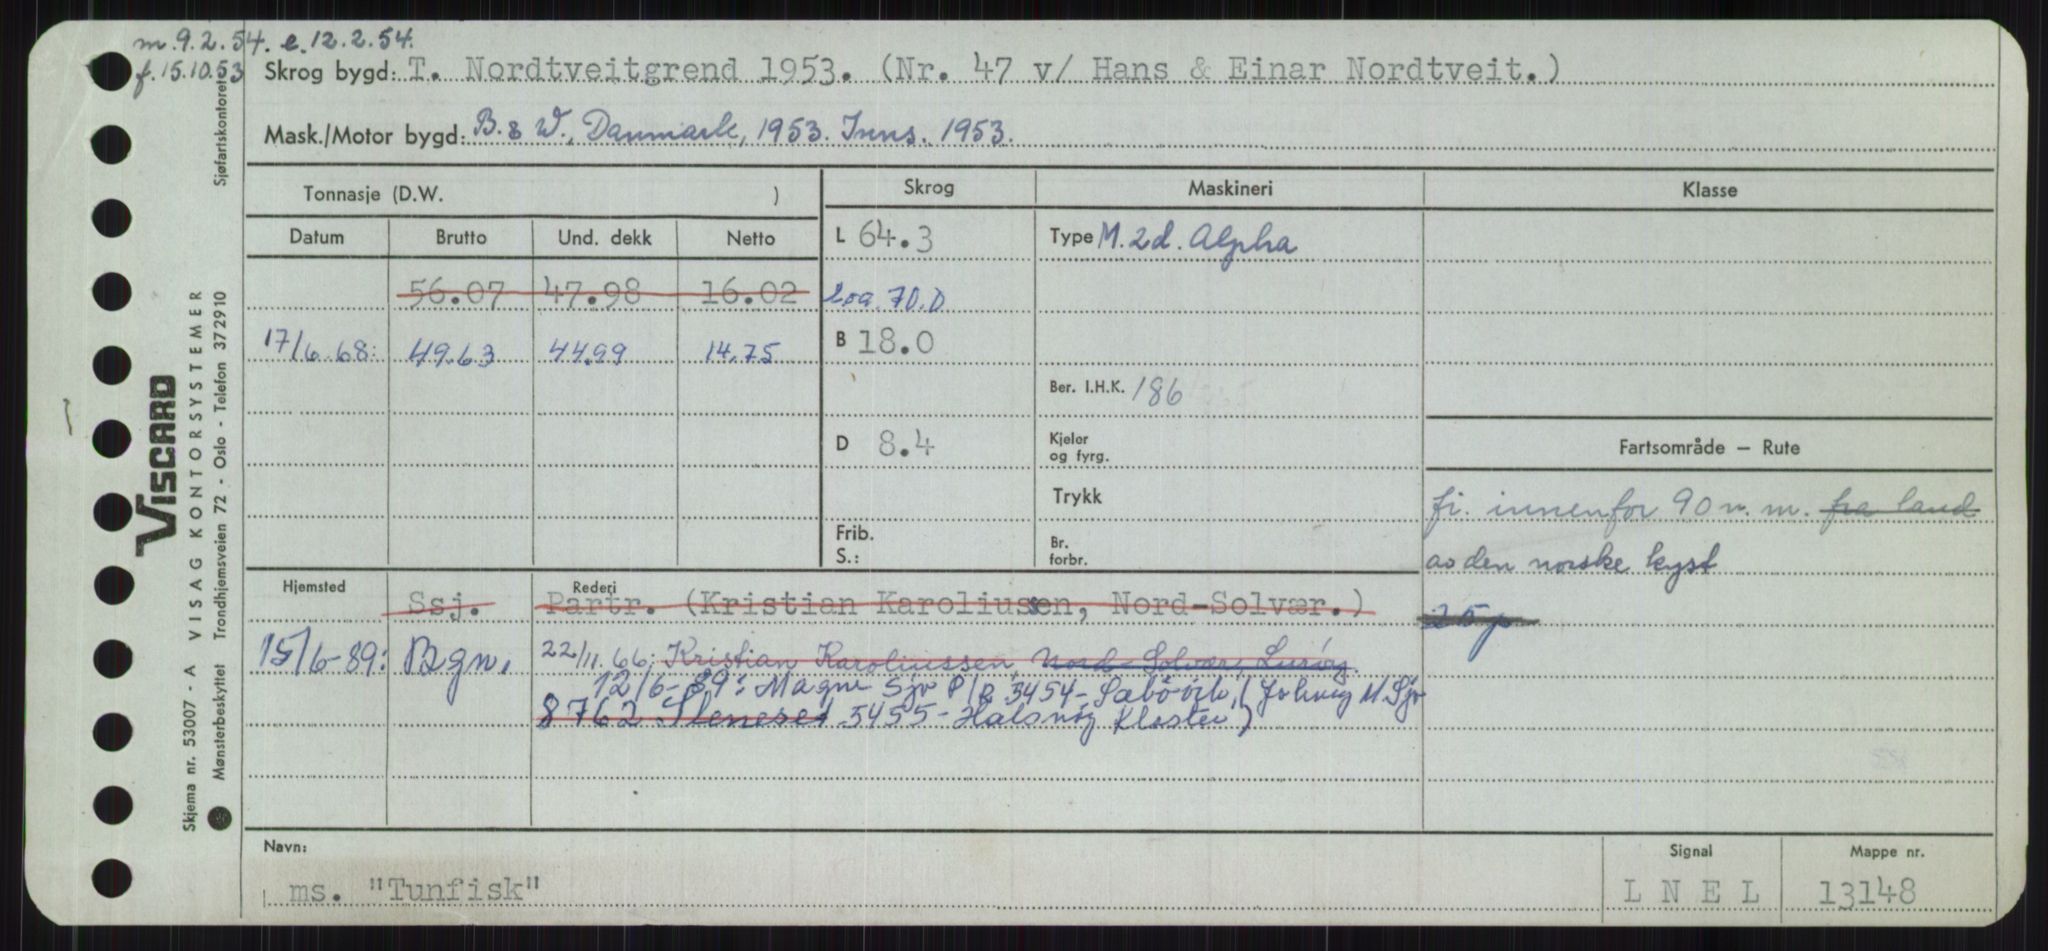 m. 9.2.54. e. 12.2.54.
f. 15.10.53
Skrog bygd: T. Nordtveitgrend 1953. (Nr. 47 v/ Hans & Einar Nordtveit.)
Mask./Motor bygd: B. & W., Danmark, 1953. Inns. 1953.
Tonnasje (D.W. )
Skrog
Maskineri
Klasse
Datum Brutto Und. dekk Netto
L 64.3
Type M. 2d. Alpha
56.07 47.98 16.02
Loa. 70.0
17/6.68: 49.63 44.99 14.75
B 18.0
Ber. I.H.K. 186
D 8.4
Kjeler
og fyrg.
Fartsområde — Rute
Trykk
fi. innenfor 90 n. m. fra land
av den norske kyst
25 p
Frib.
S.:
Br.
forbr.
Hjemsted
Rederi
Ssj. Partr. (Kristian Karoliussen, Nord-Solvær.)
15/6-89: Bgn. 22/11.66: Kristian Karoliussen, Nord-Solvær, Lurøy.
12/6-89: Magne Sjo P/R 5454-Sæbövik, (Solveig M. Sjo
8762 Sleneset 5455-Halsnøy Kloster)
Navn:
ms. "Tunfisk"
Signal
L N E L
Mappe nr.
13148
VISCARD
VISAG KONTORSYSTEMER
Skjema nr. 53007 - A
Mønsterbeskyttet Trondhjemsveien 72 - Oslo - Telefon 372910
Sjøfartskontoret